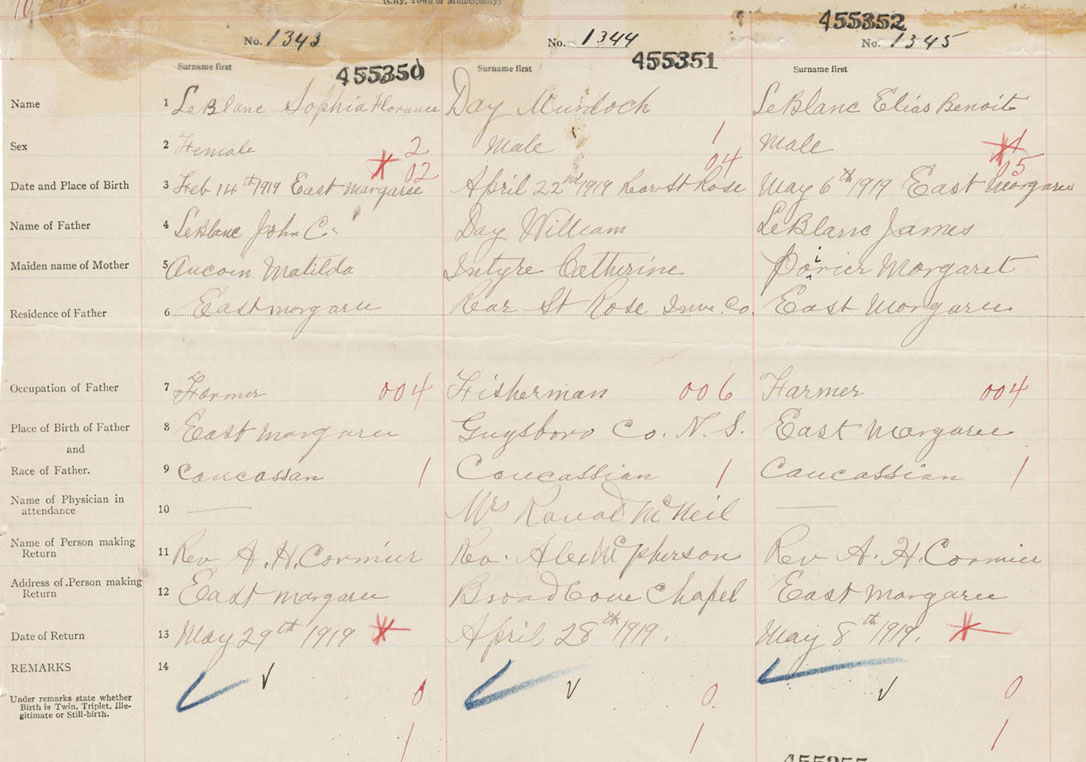 (City, Town or Municipality)
455352
No. 1343 No. 1344 No. 1345
Surname first 455350 Surname first 455351 Surname first
Name 1 LeBlanc Sophia Florance Day Murdoch LeBlanc Elias Benoit
Sex 2 Female 2 Male 1 Male 1
02 04 05
Date and Place of Birth 3 Feb 14th 1919 East Margaree April 22nd 1919 Rear St Rose May 6th 1919 East Margaree
Name of Father 4 LeBlanc John C. Day William LeBlanc James
Maiden name of Mother 5 Aucoin Matilda Intyre Catherine Poirier Margaret
Residence of Father 6 East Margaree Rear St Rose Inve. Co. East Margaree
Occupation of Father 7 Farmer 004 Fisherman 006 Farmer 004
Place of Birth of Father 8 East Margaree Guysboro Co. N.S. East Margaree
and
Race of Father. 9 Coucassan 1 Coucassian 1 Caucassian 1
Name of Physician in
attendance 10 — Mrs McNeil —
Name of Person making
Return 11 Rev A. H. Cormier Rev. Alex McPherson Rev A. H. Cormier
Address of Person making
Return 12 East Margaree Broad Cove Chapel East Margaree
Date of Return 13 May 29th 1919 April 28th 1919. May 8th 1919.
REMARKS 14
Under remarks state whether
Birth is Twin, Triplet, Ille-
gitimate or Still-birth.
0 0 0
1 1 1